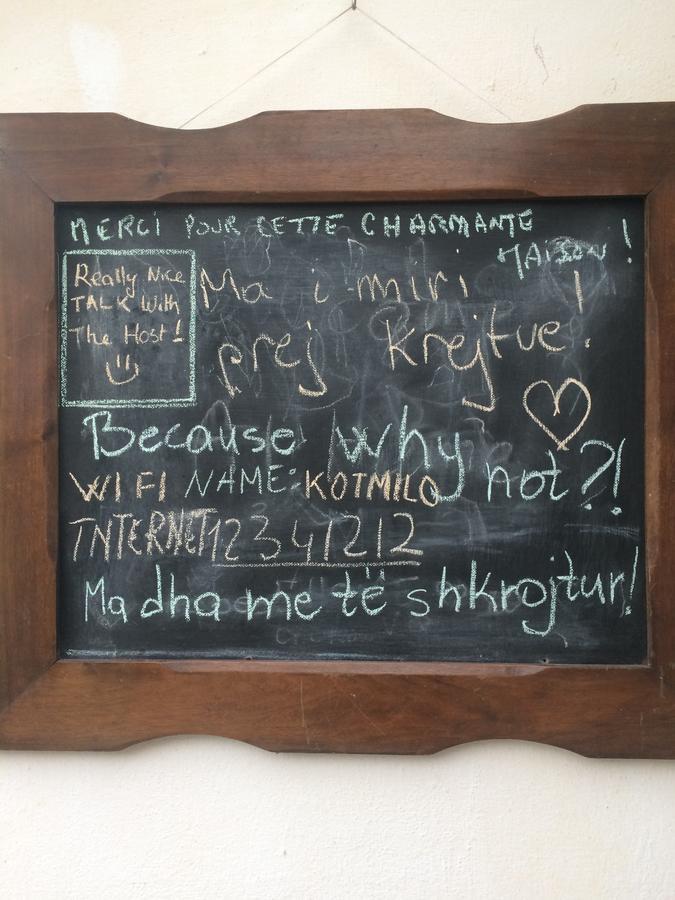 MERCI POUR CETTE CHARMANTE
MAISON !
Really Nice
TALK With
The Host!
Ma i miri
prej krejtve!
Because why
not?!
WIFI NAME: KOTMILO
INTERNET12341212
Ma dha me të shkrojtur!